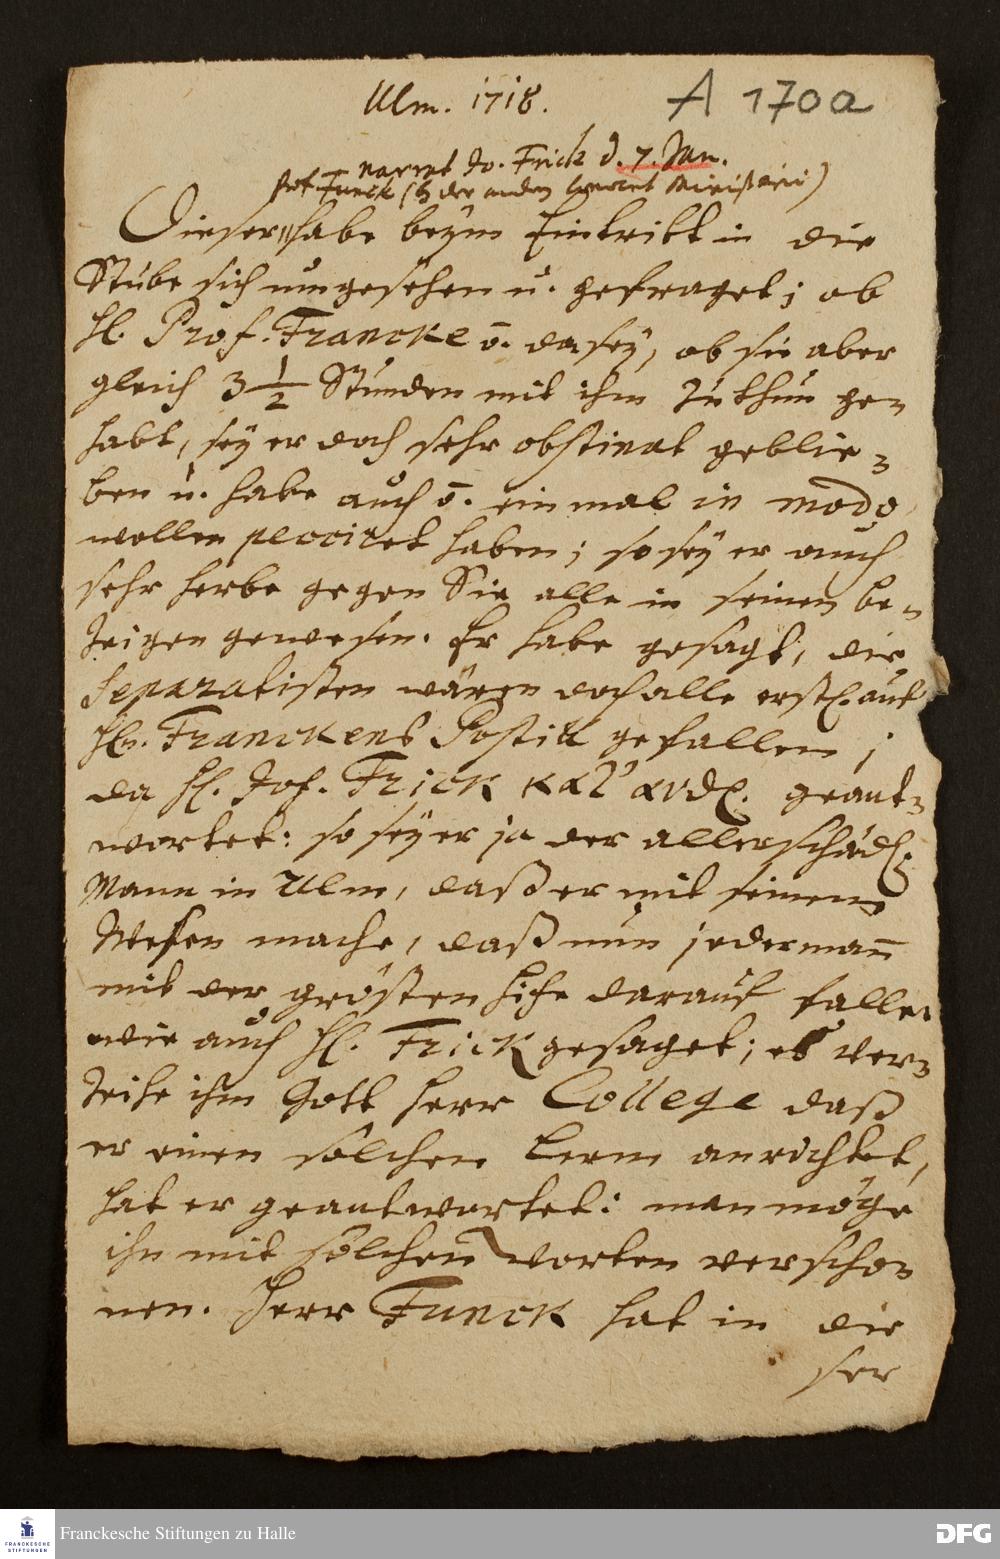 Ulm. 1718.
A 170a
narrat Jo. Frick d. 7. Jan.
Funck (der Ministerii)
Dieser habe beym Eintritt in die
Stube sich umgesehen u. gefraget; ob
H. Prof. Francke õ. da sey, ob sie aber
gleich 3 1/2 Stunden mit ihm zu thun ge=
habt, sey er doch sehr obstinat geblie=
ben u. habe auch õ. einmal in modo
wollen pecciret haben; so sey er auch
sehr herbe gegen Sie alle in seinen be=
zeigen gewesen. Er habe gesagt, die
Separatisten wären doch alle erstl. auf
Hn. Franckens Postill gefallen;
da H. Joh. Frick geant=
wortet: so sey er ja der allerschädl.
Mann in Ulm, daß er mit seinem
Wesen mache, daß nun jedermañ
mit der grösten Hize darauf falle
wie auch H. Frick gesaget; es ver=
zeihe ihm Gott Herr College daß
er einen solchen Lerm anrichtet,
hat er geantwortet: man möge
ihn mit solchen Worten verscho=
nen. Herr Funck hat in die
ser
Franckesche Stiftungen zu Halle
FRANCKESCHE
STIFTUNGEN
DFG